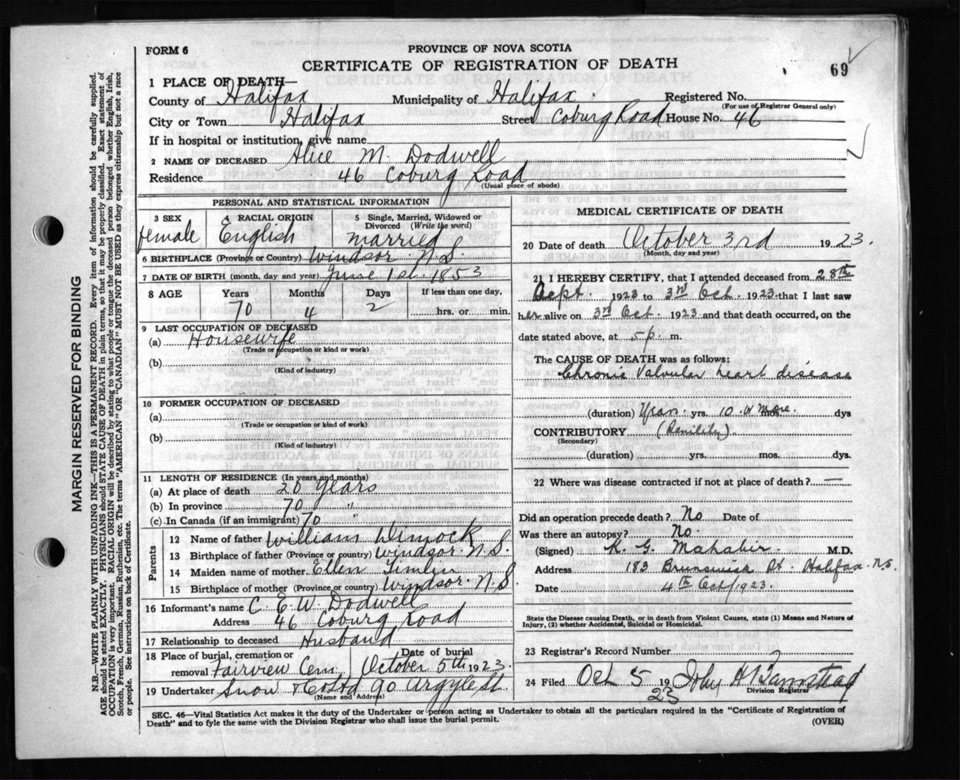 FORM 6
PROVINCE OF NOVA SCOTIA
CERTIFICATE OF REGISTRATION OF DEATH
69
1 PLACE OF DEATH—
County of Halifax Municipality of Halifax Registered No.
(For use of Registrar General only)
City or Town Halifax Street Coburg Road House No. 46
If in hospital or institution, give name
2 NAME OF DECEASED Alice M. Dodwell
Residence 46 Coburg Road
(Usual place of abode)
PERSONAL AND STATISTICAL INFORMATION
3 SEX female
4 RACIAL ORIGIN English
5 Single, Married, Widowed or Divorced (Write the word) married
6 BIRTHPLACE (Province or Country) Windsor N.S.
7 DATE OF BIRTH (month, day and year) June 1st 1853
8 AGE Years Months Days If less than one day,
70 4 2 hrs. or min.
9 LAST OCCUPATION OF DECEASED
(a) Housewife
(Trade or occupation or kind or work)
(b)
(Kind of industry)
10 FORMER OCCUPATION OF DECEASED
(a)
(Trade or occupation or kind of work)
(b)
(Kind of industry)
11 LENGTH OF RESIDENCE (In years and months)
(a) At place of death 20 Years
(b) In province 70 "
(c) In Canada (if an immigrant) 70 "
Parents
12 Name of father William Dimock
13 Birthplace of father (Province or country) Windsor N.S.
14 Maiden name of mother Ellen
15 Birthplace of mother (Province or country) Windsor N.S.
16 Informant's name C. E. W. Dodwell
Address 46 Coburg Road
17 Relationship to deceased Husband
18 Place of burial, cremation or Date of burial
removal Fairview Cem. October 5th 1923
19 Undertaker Snow & Co Ltd 90 Argyle St.
(Name and Address)
MEDICAL CERTIFICATE OF DEATH
20 Date of death October 3rd 1923.
(Month, day and year)
21 I HEREBY CERTIFY, that I attended deceased from 28th
Sept. 1923 to 3rd Oct. 1923 that I last saw
her alive on 3rd Oct. 1923 and that death occurred, on
date stated above, at 5 p. m.
The CAUSE OF DEATH was as follows:
Chronic Valvular heart disease
(duration) yrs. 10 dys
CONTRIBUTORY (Senility)
(Secondary)
(duration) yrs. mos. dys.
22 Where was disease contracted if not at place of death? —
Did an operation precede death? No Date of
Was there an autopsy? No.
(Signed) K. G. Mahabir M.D.
Address 183 Brunswick St. Halifax N.S.
Date 4th Oct 1923.
State the Disease Causing Death, or in death from Violent Causes, state (1) Means and Nature of
Injury, (2) whether Accidental, Suicidal or Homicidal.
23 Registrar's Record Number
24 Filed Oct 5 1923 John H
Division Registrar
SEC. 46—Vital Statistics Act makes it the duty of the Undertaker or person acting as Undertaker to obtain all the particulars required in the "Certificate of Registration of
Death" and to fyle the same with the Division Registrar who shall issue the burial permit.
(OVER)
MARGIN RESERVED FOR BINDING
N.B.—WRITE PLAINLY WITH UNFADING INK—THIS IS A PERMANENT RECORD. Every item of information should be carefully supplied.
AGE should be stated EXACTLY. PHYSICIANS should STATE CAUSE OF DEATH in plain terms, so that it may be properly classified. Exact statement of
OCCUPATION is very important. RACIAL ORIGIN will be described by stating to what people or tongue the deceased person belonged whether English, Irish,
Scotch, French, German, Russian, Ruthenian, etc. The terms "AMERICAN" OR "CANADIAN" MUST NOT BE USED as they express citizenship but not a race
of people. See instructions on back of Certificate.